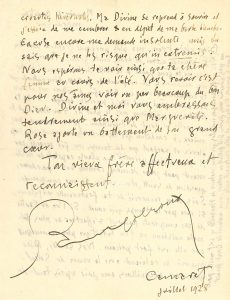 Ma Divine se reprend à sourire et
de me
Excuse encore ma demande insolente mais tu
sais que je ne les risque qu'in extremis.
Nous espérons te voir ainsi que ta chère
femme au cours de l'été. Vous revoir c'est
pour nos âmes voir un peu beaucoup du bon
Dieu. Divine et moi vous embrassons
tendrement ainsi que Marguerite.
Rose ajoute un battement de son grand
cœur.
Ton vieux frère affectueux et
reconnaissant.
Camaret
Juillet 1928